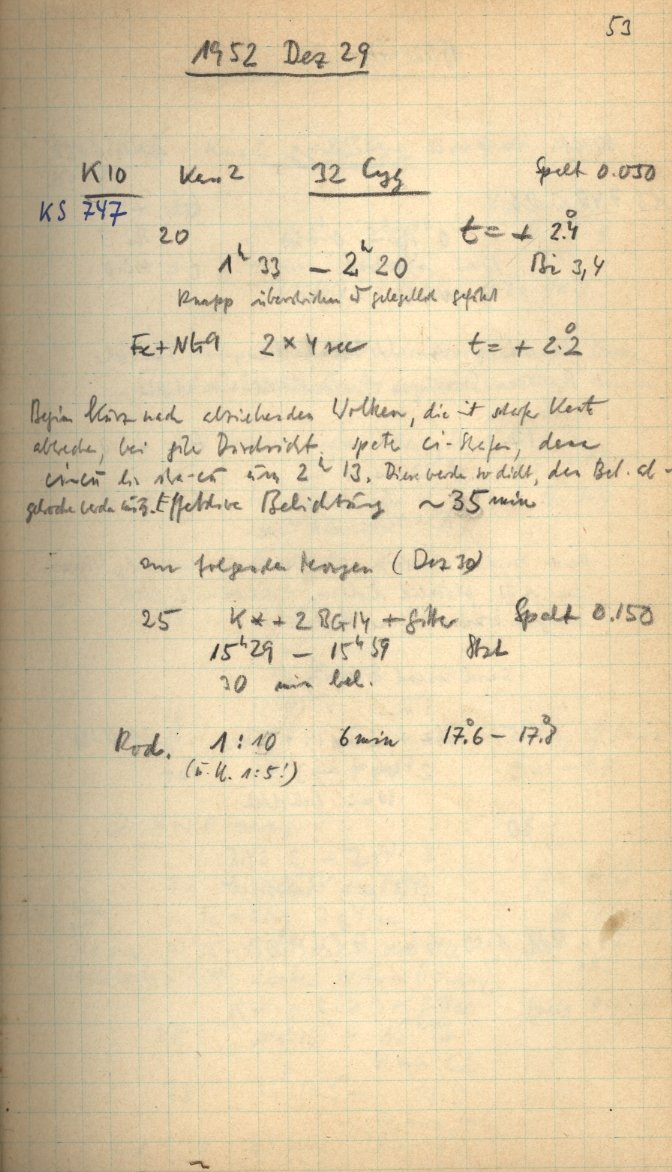 53
1952 Dez 29
K10 Kam 2 32 Cyg Spalt 0.050
KS 747
20 t = + 2.°4
1ʰ 33 – 2ʰ 20 Bi 3,4
Knapp überstrichen gelegentlich geführt
Fe+NG9 2 × 4 sec t = + 2.°2
Beginn kurz nach abziehenden Wolken, die mit scharfer Kante
abbrechen, bei guter Durchsicht, später ci-Streifen, dann
um 2ʰ 13. Diese werden so dicht, dass Bel. ab-
gebrochen werden muß. Effektive Belichtung ~35 min
am folgenden Morgen (Dez 30)
25 K* + 2 BG14 + Gitter Spalt 0.150
15ʰ29 – 15ʰ59
30 min bel.
Rod. 1:10 6 min 17.°6 – 17.°8
1:5!)